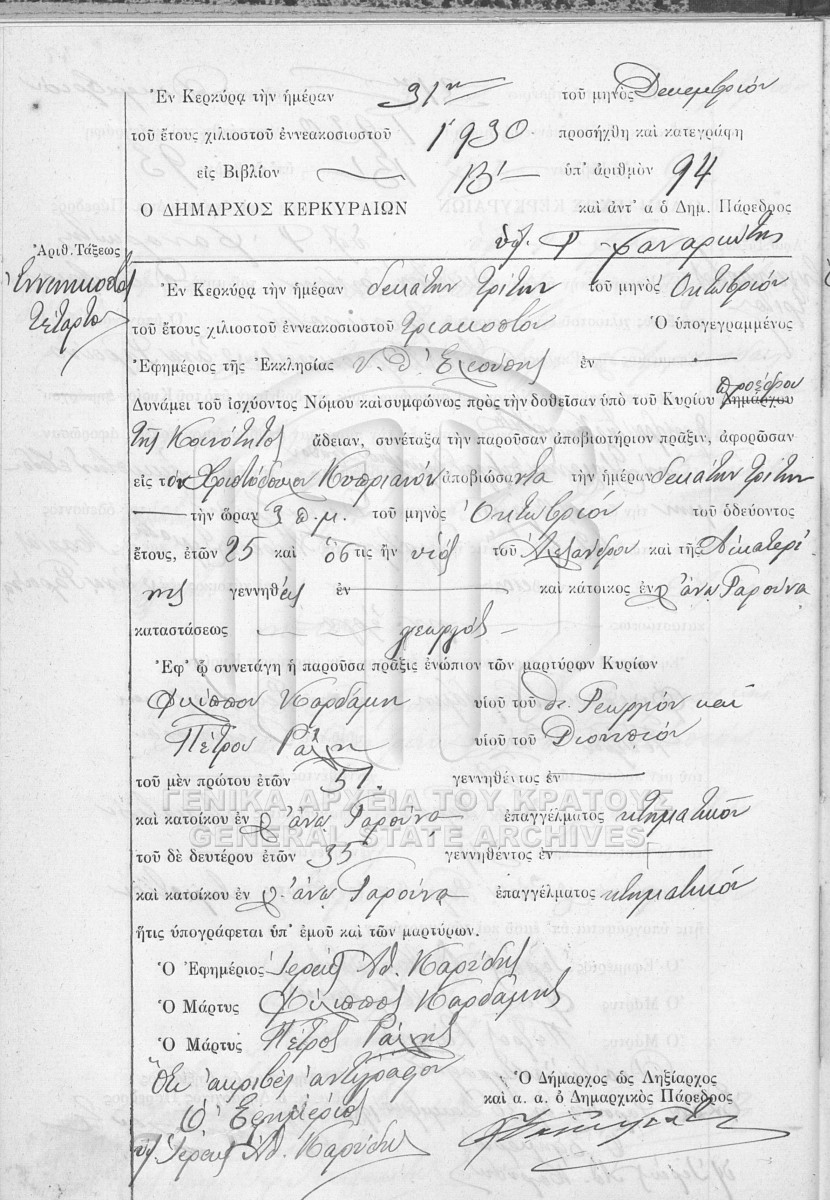 Ἐν Κερκύρᾳ τὴν ἡμέραν 31ην τοῦ μηνὸς Δεκεμβρίου
τοῦ ἔτους χιλιοστοῦ ἐννεακοσιοστοῦ 1930 προσήχθη καὶ κατεγράφη
εἰς Βιβλίον Β' ὑπ' ἀριθμὸν 94
Ο ΔΗΜΑΡΧΟΣ ΚΕΡΚΥΡΑΙΩΝ καὶ ἀντ' α ὁ Δημ. Πάρεδρος
Ἀριθ. Τάξεως
Ἐννενηκοστὸ
Τέταρτο
Ἐν Κερκύρᾳ τὴν ἡμέραν δεκάτην τρίτην τοῦ μηνὸς Ὀκτωβρίου
τοῦ ἔτους χιλιοστοῦ ἐννεακοσιοστοῦ τριακοστοῦ Ὁ ὑπογεγραμμένος
Ἐφημέριος τῆς Ἐκκλησίας Ἐλεούσης ἐν
Δυνάμει τοῦ ἰσχύοντος Νόμου καὶ συμφώνως πρὸς τὴν δοθεῖσαν ὑπὸ τοῦ Κυρίου Δημάρχου Προέδρου
τῆς Κοινότητος ἄδειαν, συνέταξα τὴν παροῦσαν ἀποβιωτήριον πρᾶξιν, ἀφορῶσαν
εἰς τὸν Χριστόδουλον Κυπριανόν ἀποβιώσαντα τὴν ἡμέραν δεκάτην τρίτην
τὴν ὥραν 3 π.μ. τοῦ μηνὸς Ὀκτωβρίου τοῦ ὁδεύοντος
ἔτους, ἐτῶν 25 καὶ ὅστις ἦν υἱὸς τοῦ Ἀλεξάνδρου καὶ τῆς Αἰκατερί
νης γεννηθείς ἐν καὶ κάτοικος ἐν Ἄνω Γαρούνα
καταστάσεως γεωργὸς
Ἐφ' ᾧ συνετάγη ἡ παροῦσα πρᾶξις ἐνώπιον τῶν μαρτύρων Κυρίων
Φιλίππου Καρδάμη υἱοῦ τοῦ Γεωργίου καὶ
Πέτρου Ράλλη υἱοῦ τοῦ Διονυσίου
τοῦ μὲν πρώτου ἐτῶν 51. γεννηθέντος ἐν
καὶ κατοίκου ἐν Ἄνω Γαρούνα ἐπαγγέλματος κτηματικοῦ
ΓΕΝΙΚΑ ΑΡΧΕΙΑ ΤΟΥ ΚΡΑΤΟΥΣ
GENERAL STATE ARCHIVES
τοῦ δὲ δευτέρου ἐτῶν 35 γεννηθέντος ἐν
καὶ κατοίκου ἐν Ἄνω Γαρούνα ἐπαγγέλματος κτηματικοῦ
ἥτις ὑπογράφεται ὑπ' ἐμοῦ καὶ τῶν μαρτύρων.
Ὁ Ἐφημέριος Ἱερεὺς Ἀθ. Καρύδης
Ὁ Μάρτυς Φίλιππος Καρδάμης
Ὁ Μάρτυς Πέτρος Ράλλης
Ὅτι ἀκριβὲς ἀντίγραφον
Ὁ Ἐφημέριος
Ἱερεὺς Ἀθ. Καρύδης
Ὁ Δήμαρχος ὡς Ληξίαρχος
καὶ α. α. ὁ Δημαρχικὸς Πάρεδρος